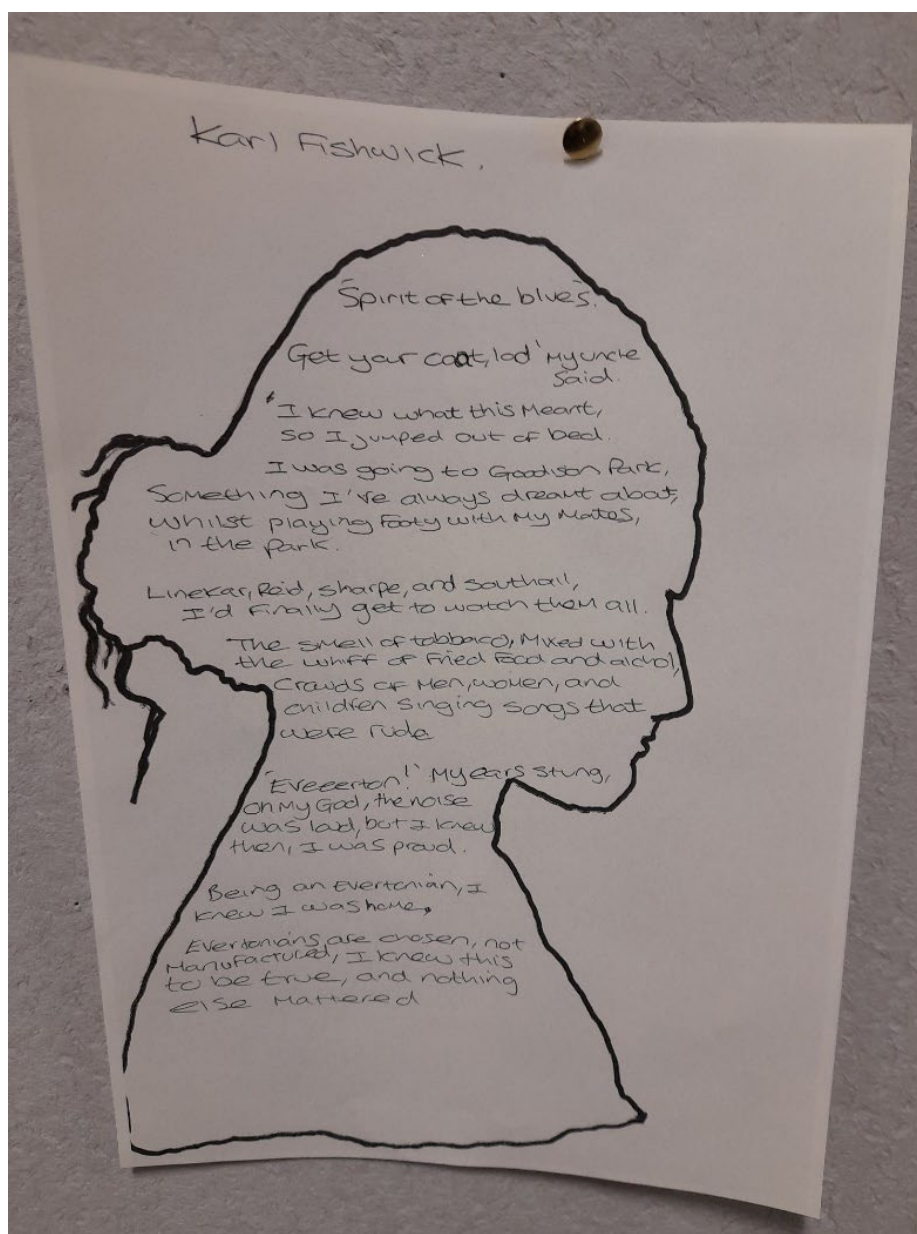 Karl Fishwick.
"Spirit of the blues".
Get your coat, lad' My uncle
said.
'I knew what this Meant,
so I jumped out of bed.
I was going to Goodison Park,
Something I've always dreamt about,
whilst playing footy with My Mates,
in the park.
Linekar, Reid, Sharpe, and Southall,
I'd finally get to watch them all.
The smell of tobbaco, Mixed with
the whiff of fried food and alchol,
Crowds of Men, women, and
children singing songs that
were rude
'Eveeerton!' My ears stung,
oh My God, the noise
was loud, but I knew
then, I was proud.
Being an Evertonian, I
knew I was home.
Evertonians are chosen, not
Manufactured, I knew this
to be true, and nothing
else Mattered